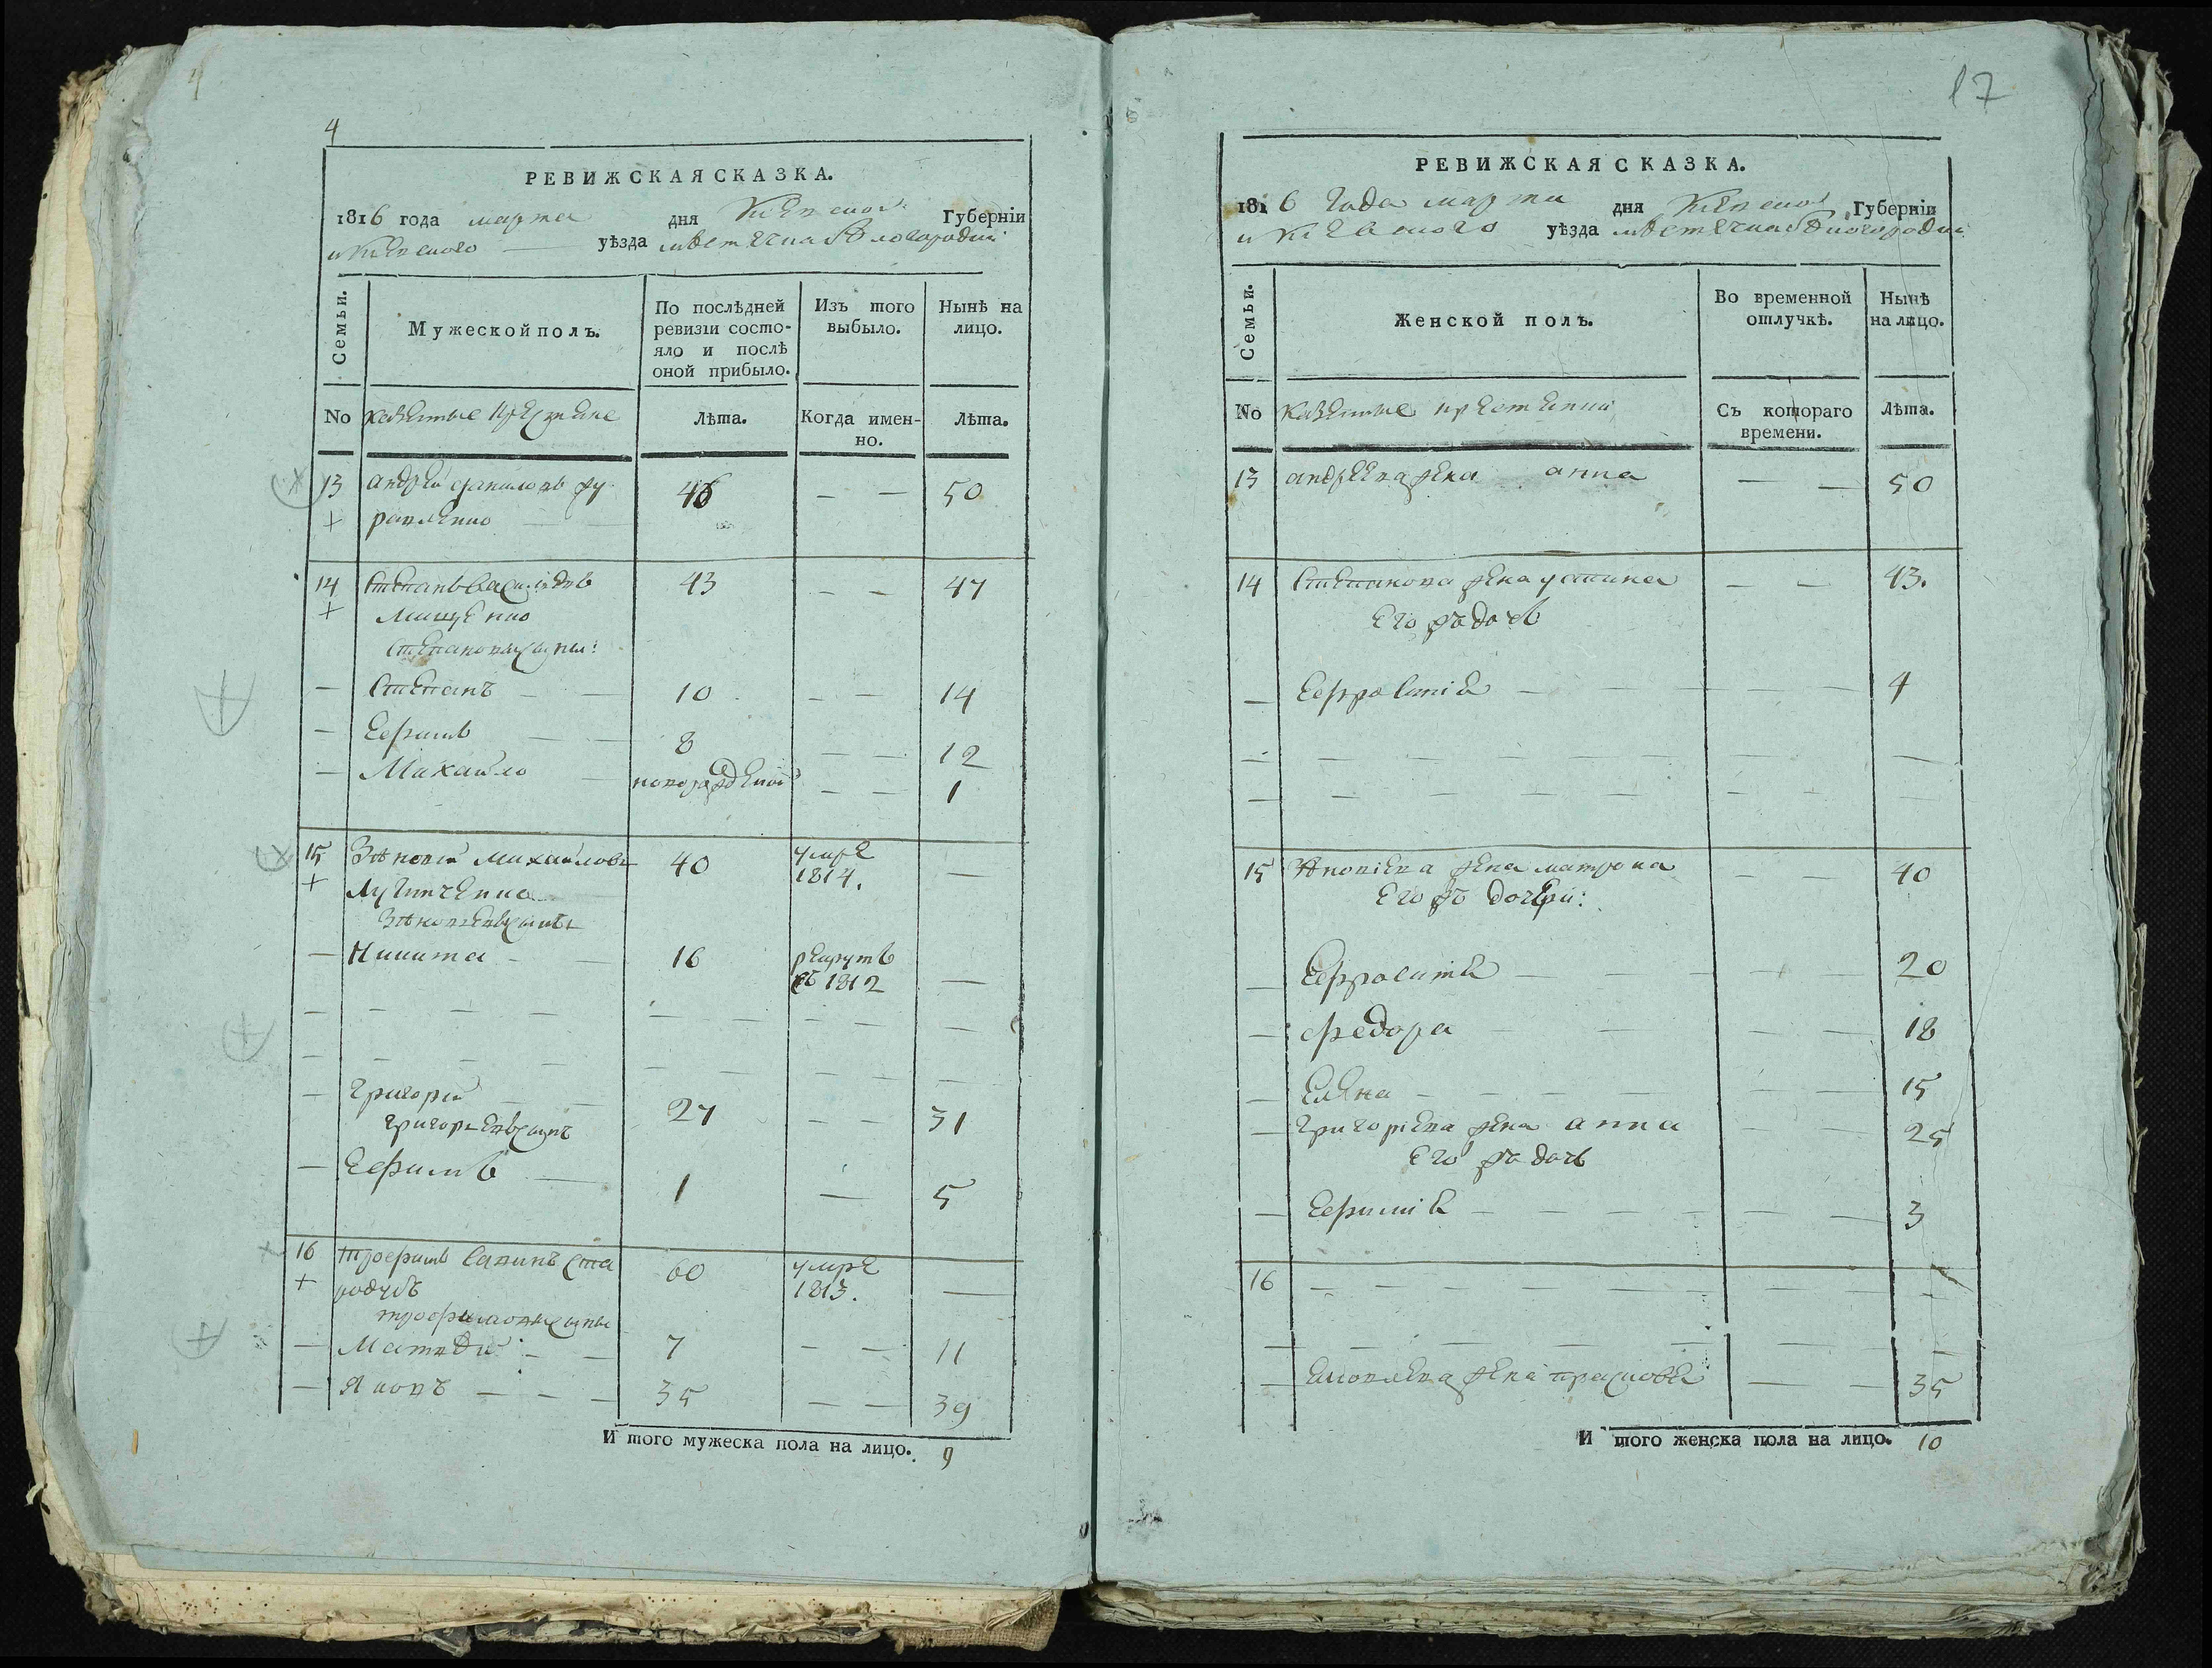 4
РЕВИЖСКАЯ СКАЗКА.
1816 года марта дня Киевской Губерніи
и Киевского уѣзда мѣстечка Бѣлогородки
Семьи. Мужеской полъ. По послѣдней ревизіи состояло и послѣ оной прибыло. Изъ того выбыло. Нынѣ на лицо.
No казенные крестяне Лѣта. Когда именно. Лѣта.
13 андрей даниловъ жу 46 — — 50
+ равленко
14 Степанъ Василіевъ 43 — — 47
+ Мищенко
Степановы сыны:
— Степанъ — — 10 — — 14
— Ефимъ — — 8 — — 12
— Михайло — новорожденой — — 1
15 Зѣновій Михайловъ 40 умре 1814. —
+
Зѣновіевъ сынъ
— Никита — — 16 рекрутъ въ 1812 —
— Григорій — — 27 — — 31
Григоріевъ сынъ
— Ефимъ — 1 — 5
16 трофимъ Савинъ Ста 60 умре 1813. —
+ родубъ
трофимовы сыны
— Матвѣй — — 7 — — 11
— Яковъ — — — 35 — — 39
И того мужеска пола на лицо. 9
17
РЕВИЖСКАЯ СКАЗКА.
1816 года марта дня Киевской Губерніи
и Киевского уѣзда мѣстечка Бѣлогородки
Семьи. Женской полъ. Во временной отлучкѣ. Нынѣ на лицо.
No казенные крестяни Съ котораго времени. Лѣта.
13 андреева жена анна — — 50
14 Степанова жена устина — — 43.
Его жъ дочь
— Ефросинія — — — — 4
15 Зѣновіева жена матрона — — 40
Его жъ дочери:
— Ефросиния — — — — 20
— федора — — — — 18
— Елена — — — — — — 15
— Григоріева жена анна — — 25
Его жъ дочь
— Ефимія — — — — — — — 3
16 — — — — — — — —
— Яковлева жена прасковя — — 35
И того женска пола на лицо. 10